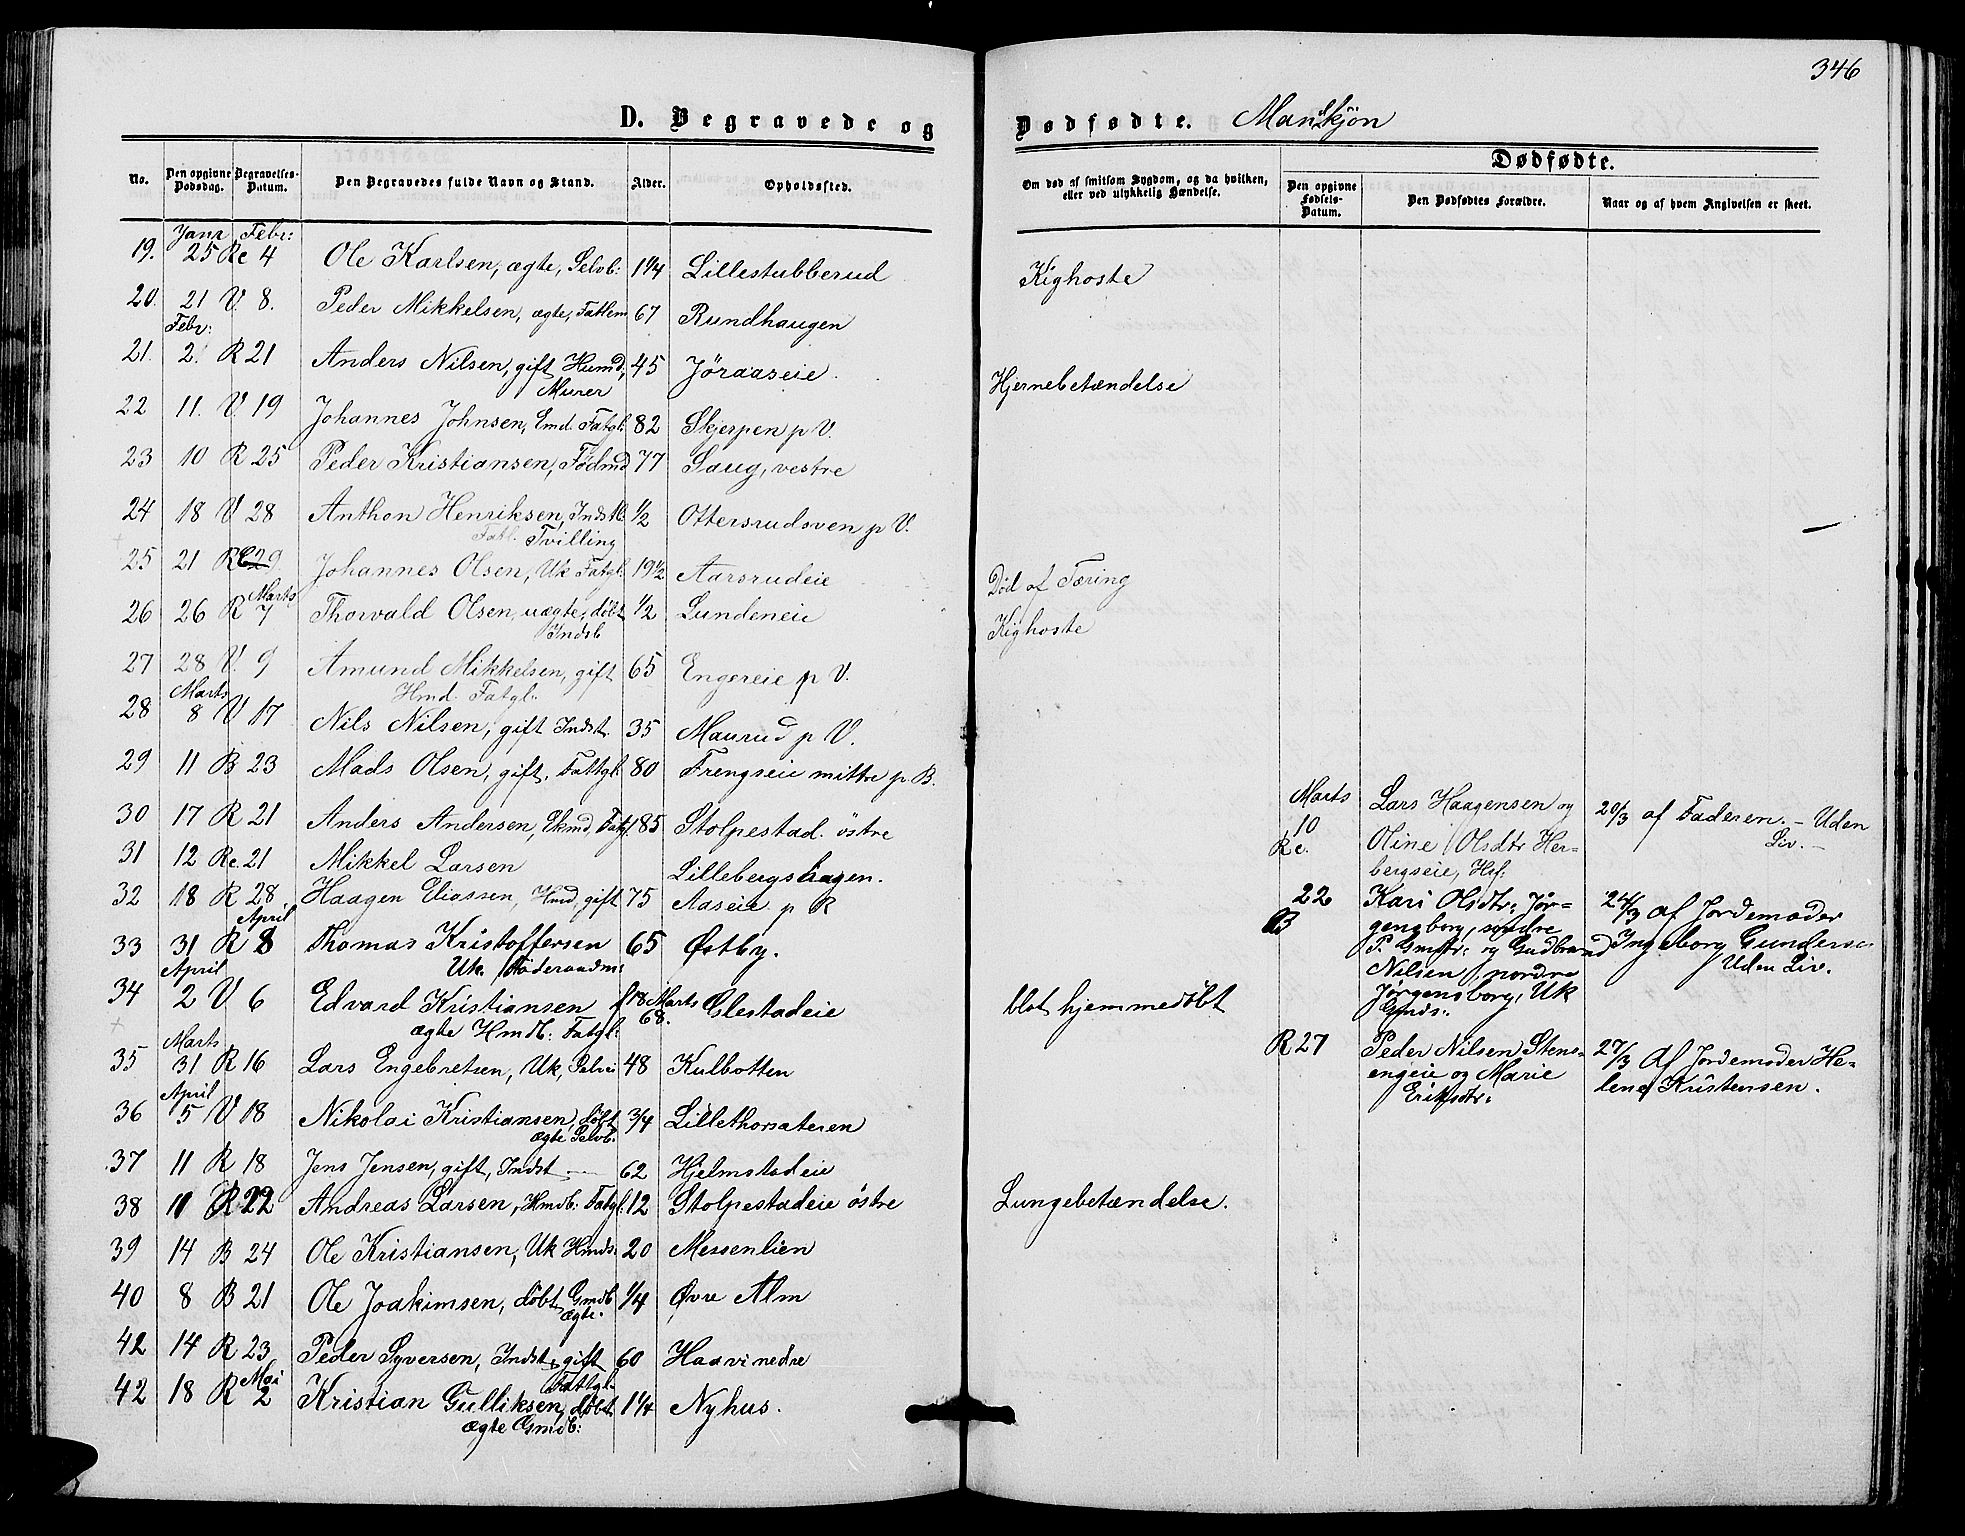 346
D. Begravede og Dødfødte. Mandkjøn
No.
Den opgivne Dødsdag.
Begravelses-Datum.
Den Begravedes fulde Navn og Stand.
Alder.
Opholdssted.
Om død af smitsom Sygdom, og da hvilken, eller ved ulykkelig Hændelse.
Dødfødte.
Den opgivne Fødsels-Datum.
Den Dødfødtes Forældre.
Naar og af hvem Angivelsen er skeet.
Janr Febr:
19. 25 Re 4 Ole Karlsen, ægte, Selvb: 1 1/4 Lillestubberud Kighoste
20. 21 V 8. Peder Mikkelsen, ægte, Fatlem 67 Rundhaugen
Febr:
21. 2. R 21 Anders Nilsen, gift Husmd, 45 Jøraaseie. Hjernebetændelse
Murer
22 11. V. 19 Johannes Johnsen, Emd. Fatgl: 82 Skjerpen p V.
23 10 R 25 Peder Kristiansen, Fødmd 77 Saug, vestre
24 18 V 28 Anthon Henriksen, Indstb. 1/2 Ottersrudsven p V.
Fatl. Tvilling
25 21 Re 29 Johannes Olsen, Uk Fatgl. 19 1/2 Aarsrudeie Död af Tæring
Marts
26 26 R 7 Thorvald Olsen, uægte, döbt 1/2 Lundeneie Kighoste
Indsb
27 28 V. 9 Amund Mikkelsen, gift 65 Engereie p V.
Marts Hmd. Fatgl:
28 8 V 17 Nils Nilsen, gift Indst. 35 Maurud p V.
29 11 B 23 Mads Olsen, gift, Fattgl: 80 Frengseie mittre p B.
30 17 R 21 Anders Andersen, Ekmd, Fatgl 85 Stolpestad. östre
31 12 Re. 21 Mikkel Larsen Lillebergshagen.
32 18 R 28. Haagen Eliassen, Hmd, gift 75 Aaseie p R
April
33 31 R 8 Thomas Kristoffersen 65 Østby.
April Uk. Föderaadm:
34 2 V 6 Edvard Kristiansen f 18 Marts 68. Glestadeie blot hjemmedöbt
ægte Hmdb: Fatgl:
Marts
35 31 R 16 Lars Engebretsen, Uk, Selvei 48 Kulbotten
April
36 5 V 18 Nikolai Kristiansen, döbt 3/4 Lillethorsæteren
ægte Selvb:
37 11 R 18 Jens Jensen, gift, Indst 62 Hjelmstadeie
38 11 R 22 Andreas Larsen, Hmdb: Fatgl: 12 Stolpestadeie östre Lungebetændelse.
39 14 B 24 Ole Kristiansen, Uk Hmds: 20 Messenlien
40 8 B 21 Ole Joakimsen, döbt Gmdb 1/4 Øvre Alm
ægte.
42 14 R 23 Peder Syversen, Indst, gift 60 Haavi nedre
Mai Fattgl.
42 18 R 2 Kristian Gulliksen, döbt 1 1/4 Nyhus.
ægte Gmdb:
Marts Lars Haagensen og 20/3 af Faderen. - Uden
10 Oline Olsdtr Her- Liv. -
Re. bergseie, Hsf:
22 Kari Olsdtr: Jör- 24/3 af Jordemoder
B gensborg, söndre Ingeborg Gundersen
P. Gmdtr: og Gudbrand Uden Liv.
Nilsen, nordre
Jörgensborg, Uk
Gmds:
R 27 Peder Nilsen Stens- 27/3 af Jordemoder He-
engeie og Marie lene Kristensen.
Eriksdtr: